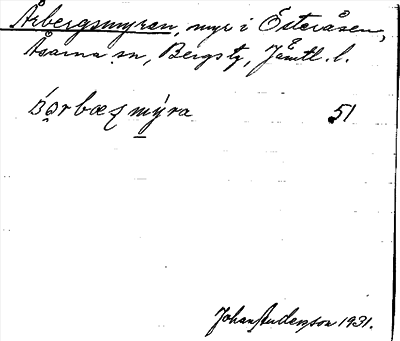 Årbergsmyran, myr i Österåsen,
Åsarna sn, Bergs tg, Jämtl. l.
51
Johan Anderson 1931.